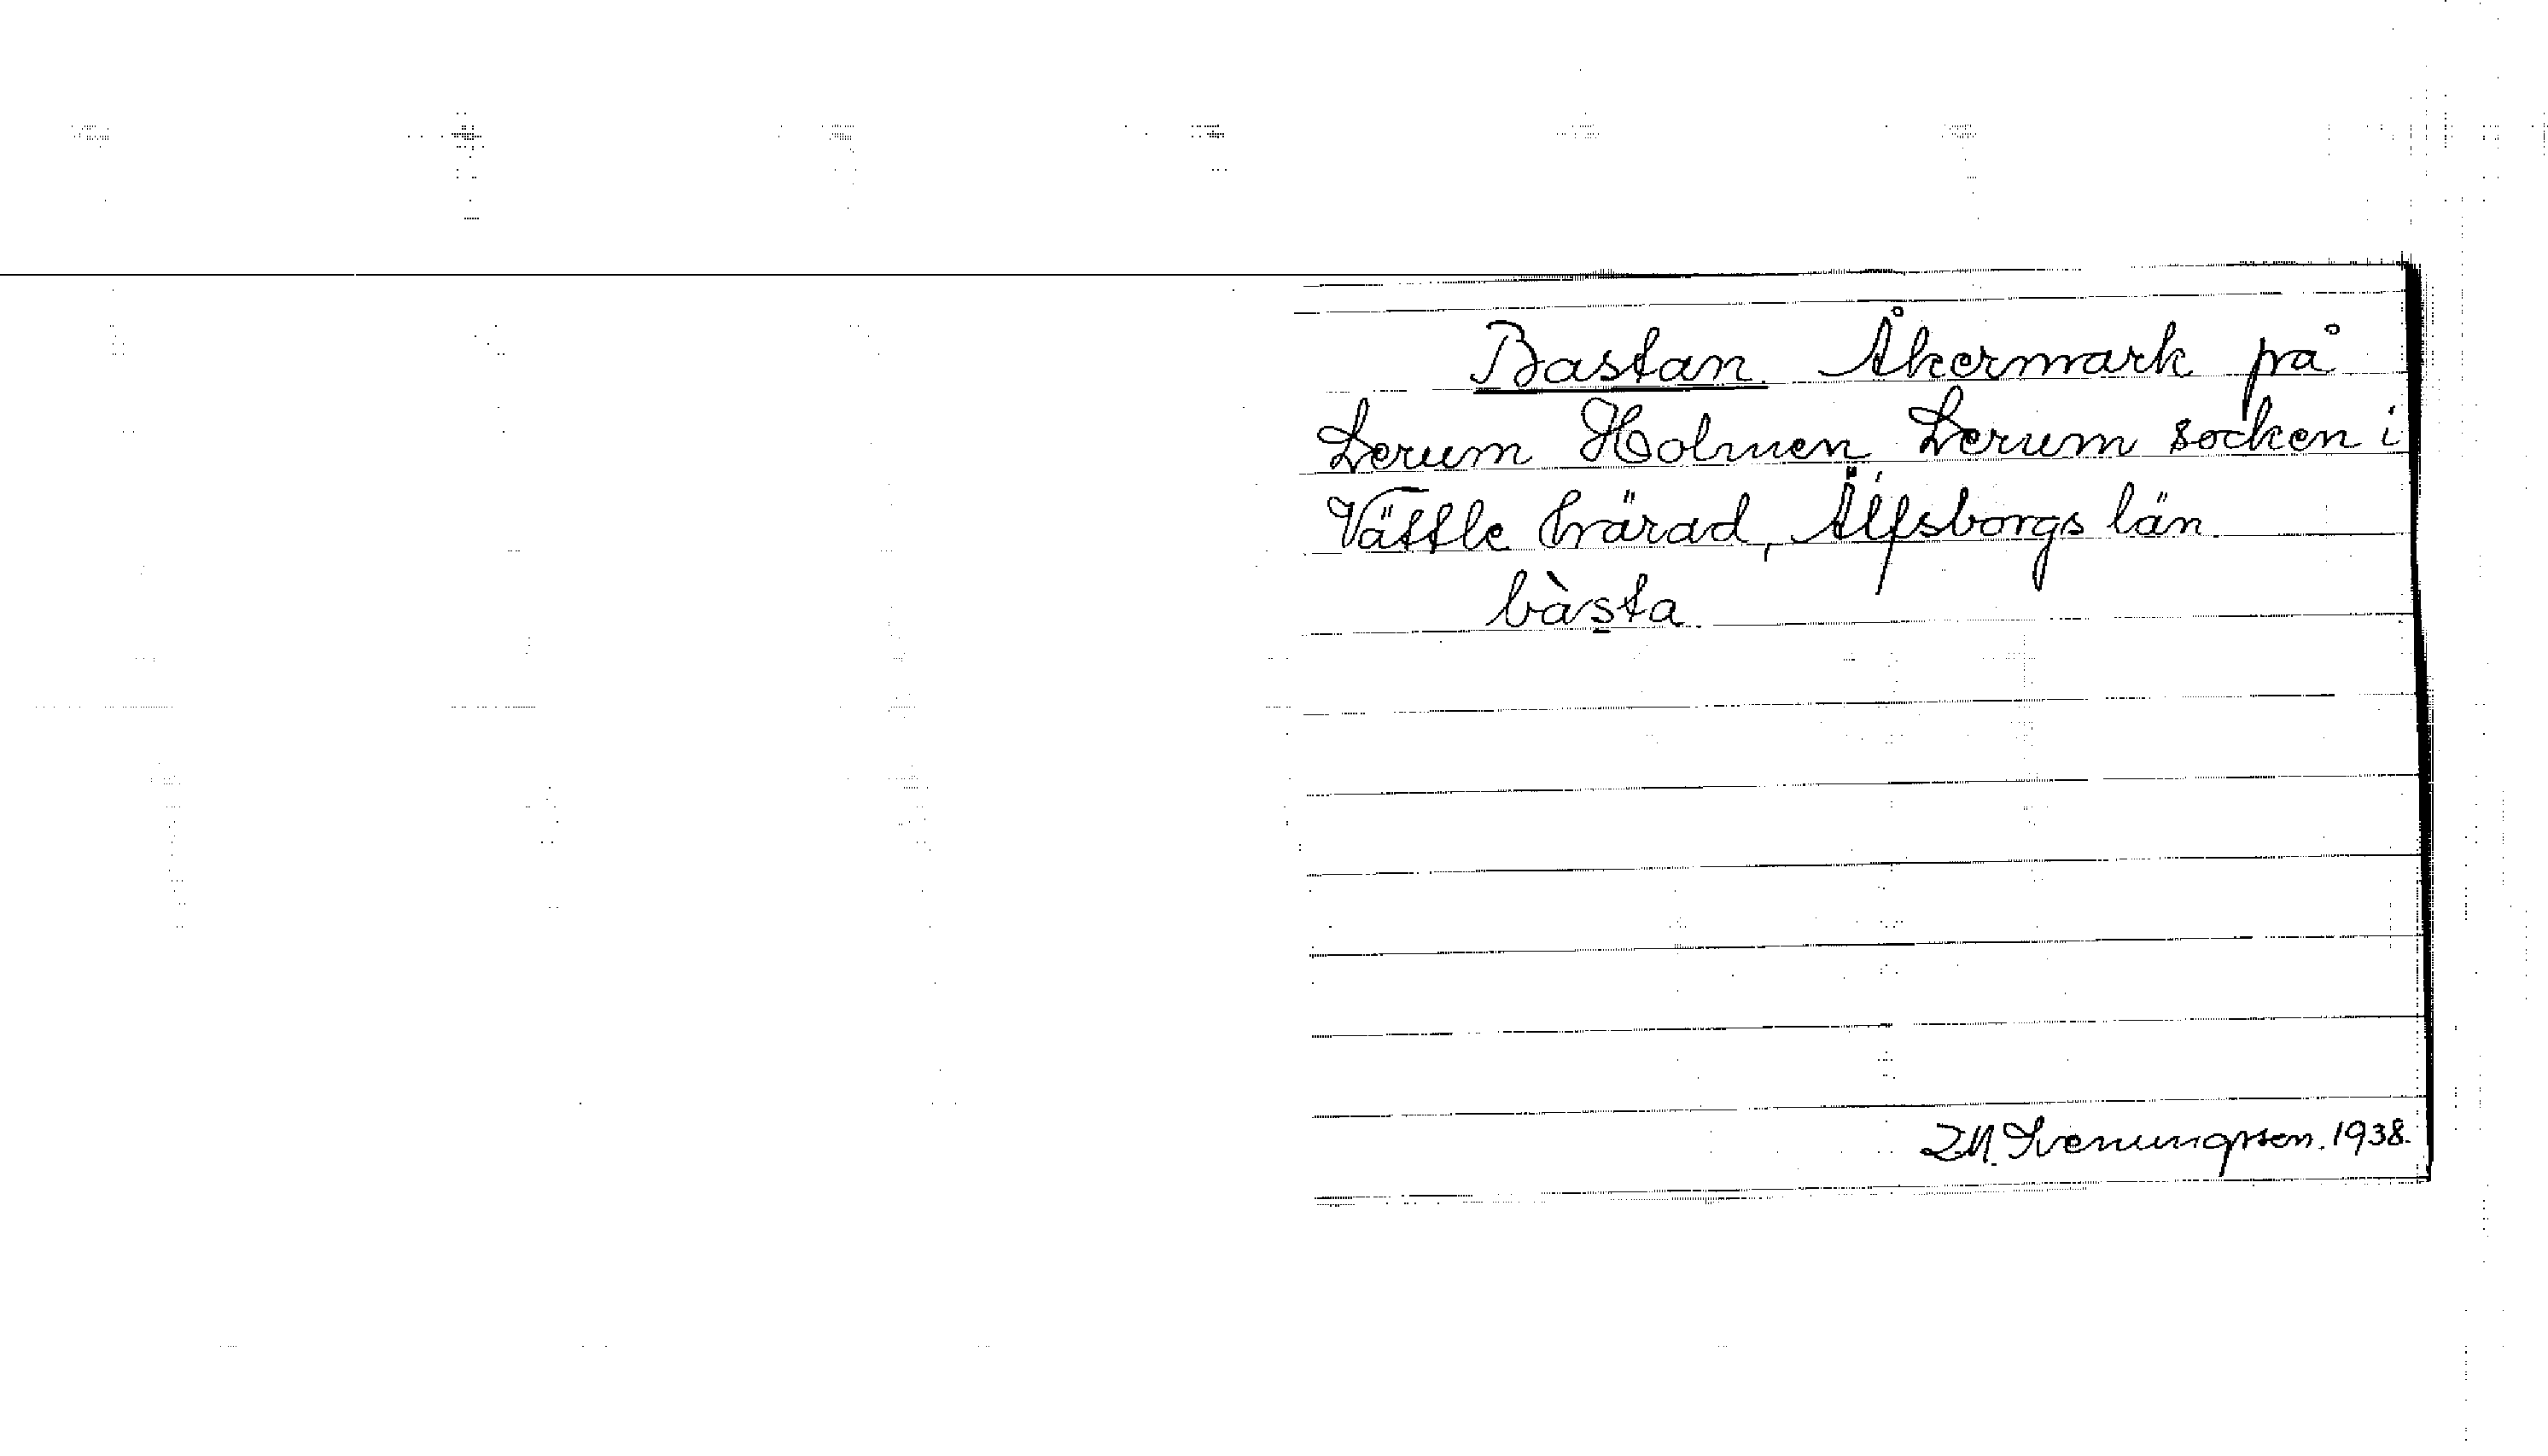 Bastan Åkermark på
Lerum Holmen, Lerum socken i
Vättle härad, Älfsborgs län.
bàsta
1938.